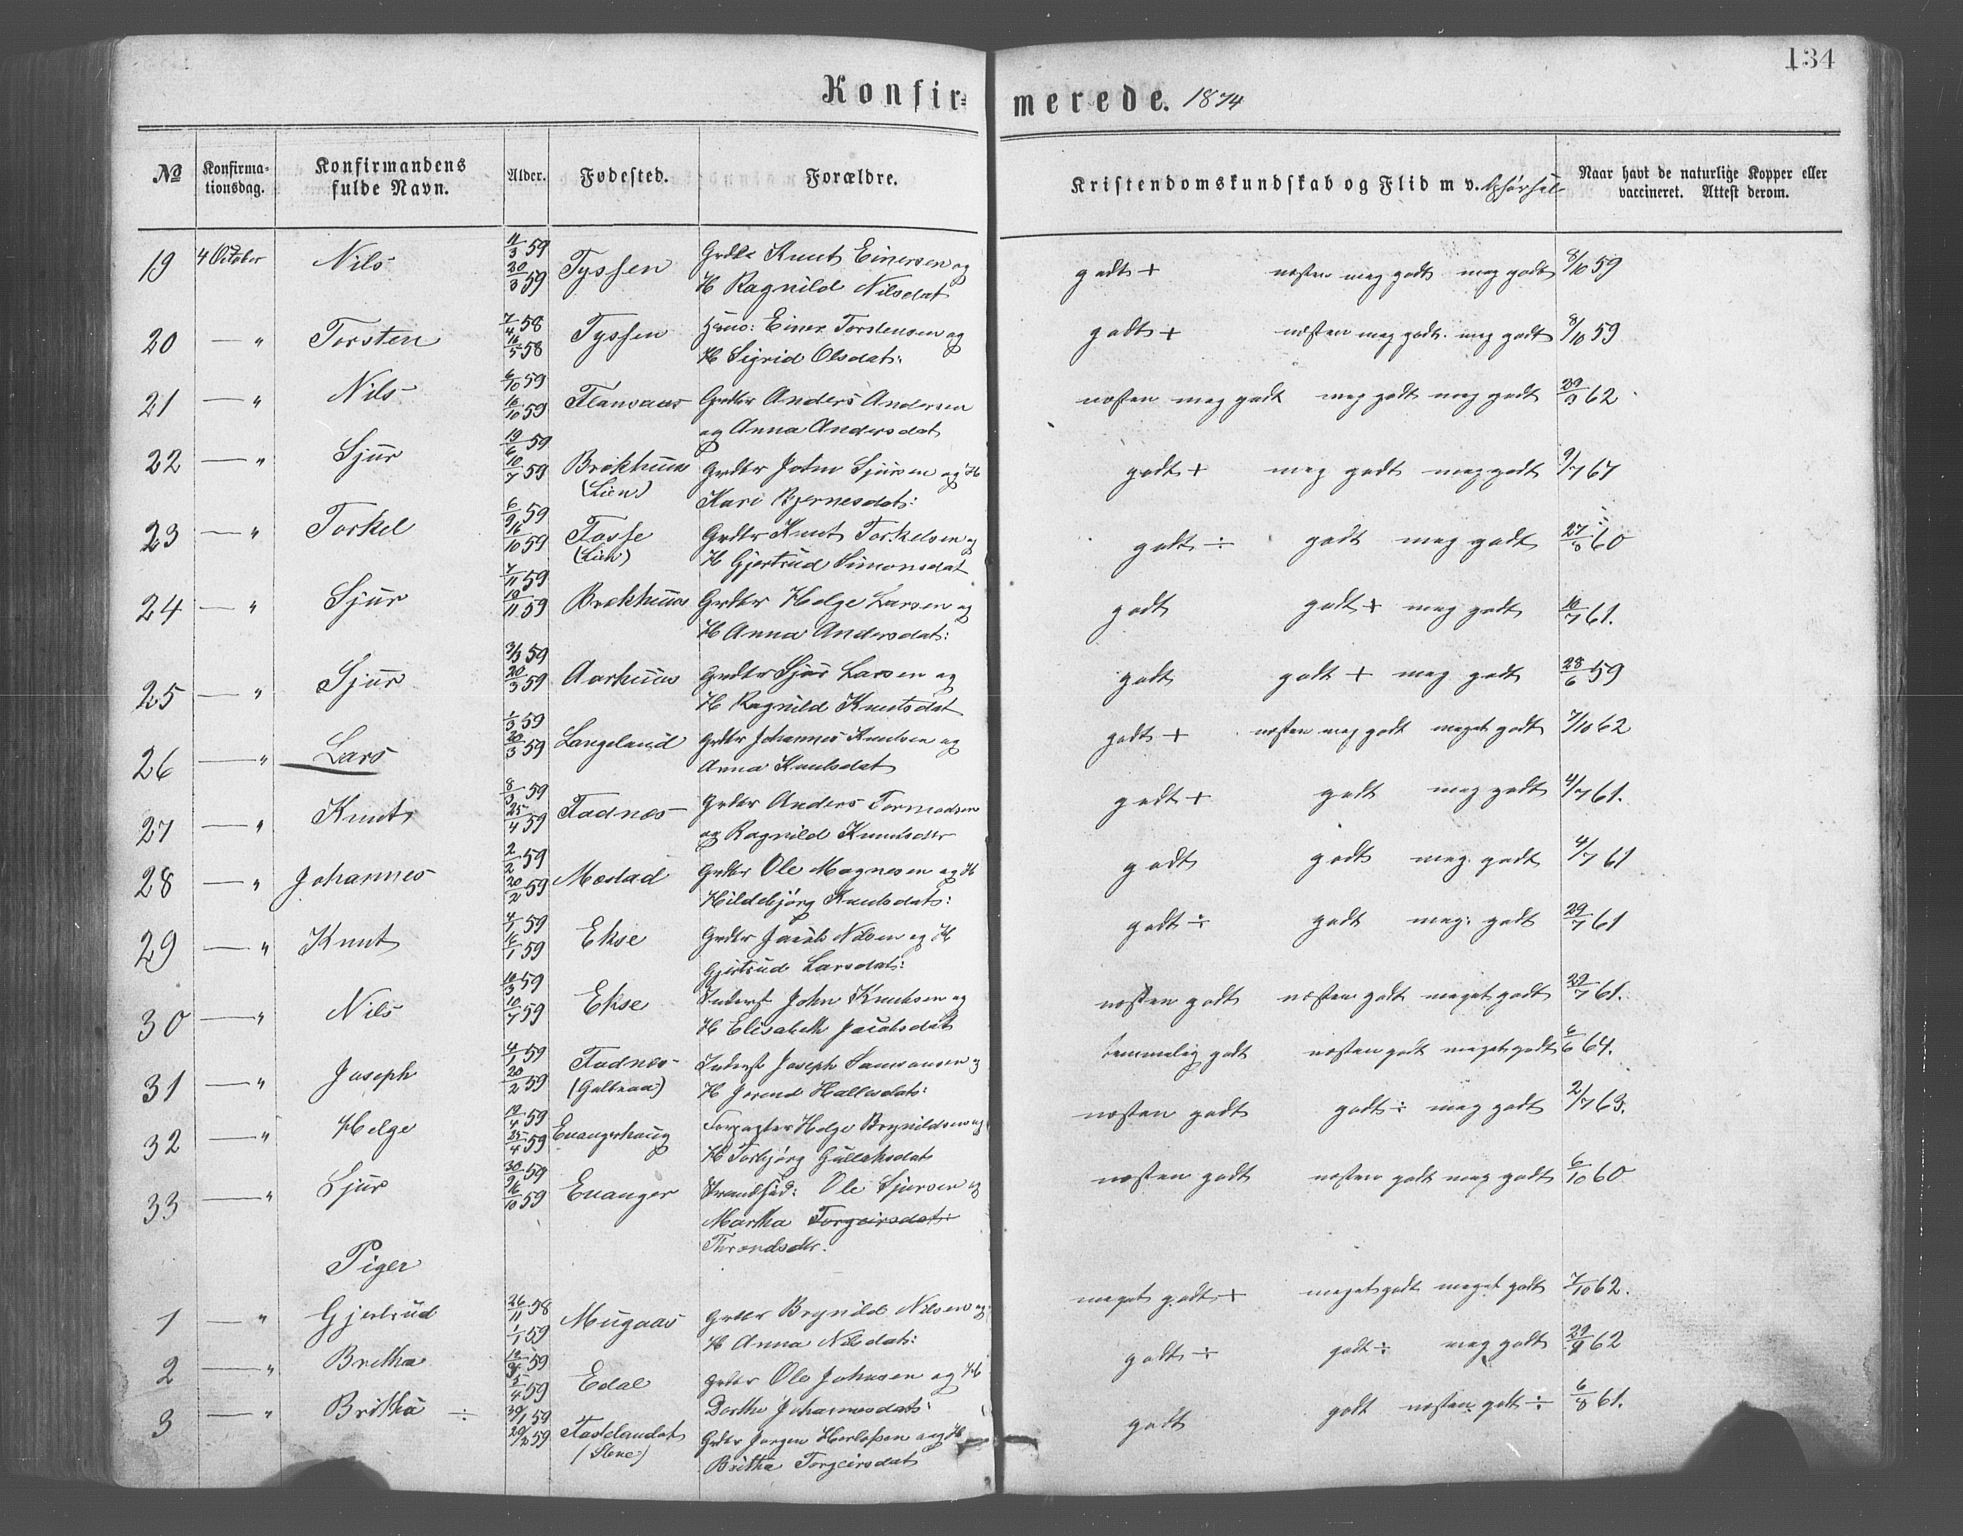 134
Konfir=
merede. 1874
No
Konfirma-
tionsdag.
Konfirmandens
fulde Navn.
Alder.
Fødested.
Forældre.
Kristendomskundskab og Flid m v.
Naar havt de naturlige Kopper eller
vaccineret. Attest derom.
19 4 October Nils 11/3 59 20/3 59 Tyssen Grdbr Knut Einersen og
H Ragnild Nilsdat godt + næsten meg godt meg godt 8/10 59
20 — " Torsten 7/4 58 16/5 58 Tyssen Einer Torstensen og
H Sigrid Olsdat: godt + næsten meg godt. meg godt 8/10 59
21 — " Nils 6/10 59 16/10 59 Grdbr Anders Andersen
og Anna Andersdat næsten meg godt meg godt meg godt 62
22 — " Sjur 19/6 59 10/7 59 Brekhuus
(Lien) Grdbr John Sjursen og H
Kari Bjørnesdat: godt + meg godt meg godt 9/7 67
23 — " Torkel 6/9 59 16/10 59 Fosse
(Lien) Grdbr Knut Torkelsen og
H Gjertrud Simonsdat godt ÷ godt meg godt 60
24 — " Sjur 7/11 59 19/11 59 Brekhuus Grdbr Helge Larsen og
H Anna Andersdat: godt godt + meg godt 61.
25 — " Sjur 3/3 59 20/3 59 Aarhuus Grdbr Sjur Larsen og
H Ragnild Knutsdat godt godt + meg godt 28/6 59
26 — " Lars 1/3 59 20/3 59 Langeland Grdbr Johannes Knutsen og
Anna Knutsdat godt + næsten meg godt meget godt 7/10 62
27 — " Knut 8/3 59 25/4 59 Fadnes Grdbr Anders Tormodsen
og Ragnild Knutsdtr godt + godt meg godt 4/7 61.
28 — " Johannes 2/2 59 20/2 59 Mestad Grdbr Ole Magnesen og H
Hildebjørg Knutsdat: godt godt meg. godt 4/7 61
29 — " Knut 4/1 59 6/1 59 Ekse Grdbr Jacob Nilsen og H
Gjertrud Larsdat: godt ÷ godt meg: godt 29/7 61
30 — " Nils 59 10/7 59 Ekse Inderst John Knutsen og
H Elisabeth Jacobsdat næsten godt næsten godt meget godt 29/7 61.
31 — " Joseph 4/1 59 20/2 59 Fadnes
(Geitraa) Inderst Joseph Samsonsen og
H Jorend Hallesdat: temmelig godt næsten godt meget godt 6/6 64.
32 — " Helge 19/4 59 25/4 59 Evangerhaug Helge Brynildsen og
H Torbjørg Gullaksdat næsten godt godt ÷ meg godt 2/7 63.
33 — " Sjur 30/9 59 16/10 59 Evanger Strandsid: Ole Sjursen og
Martha Torgeirsdat:
Throndsdtr. næsten godt næsten godt meg godt 6/10 60
Piger
1 — " Gjertrud 26/11 58 1/1 59 Mugaas Grdbr Brynild Nilsen og
H Anna Nilsdat: meget godt + meget godt meget godt 7/10 62.
2 — " Bretha 59 5/4 59 Edal Grdbr Ole Johnsen og H
Dorthe Johannesdat: godt ÷ godt ÷ meg godt 29/9 62
3 — " Britha ÷ 59 59
(Slene) Grdbr Jørgen Herlofsen og H
Britha Torgeirsdat godt godt næsten godt ÷ 6/8 61.